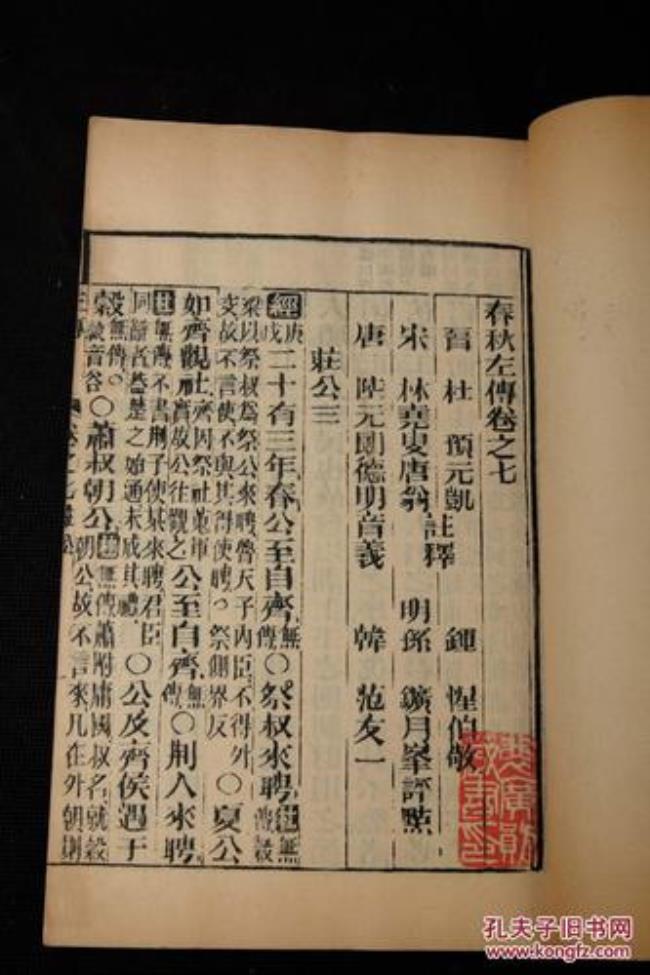 春秋左傳卷之七
晉 杜 預元凱
宋 林堯叟唐翁 註釋
唐 陸元朗德明音義
鍾 惺伯敬
明孫 鑛月峯評點
韓 范友一
莊公三
經庚戌二十有三年春公至自齊無傳○祭叔來聘杜無傳穀
梁以祭叔為祭公來聘魯天子內臣不得外
交故不言使不與其得使聘○祭側界反○夏公
如齊觀社齊因祭社蒐軍實故公往觀之公至自齊無傳○荊人來聘
杜無傳不書荊子使某來聘君臣
同辭者蓋楚之始通未成其禮○公及齊侯遇于
穀無傳○穀音谷○蕭叔朝公杜無傳蕭附庸國叔名就穀
朝公故不言來凡在外朝則
孔夫子旧书网
www.kongfz.com